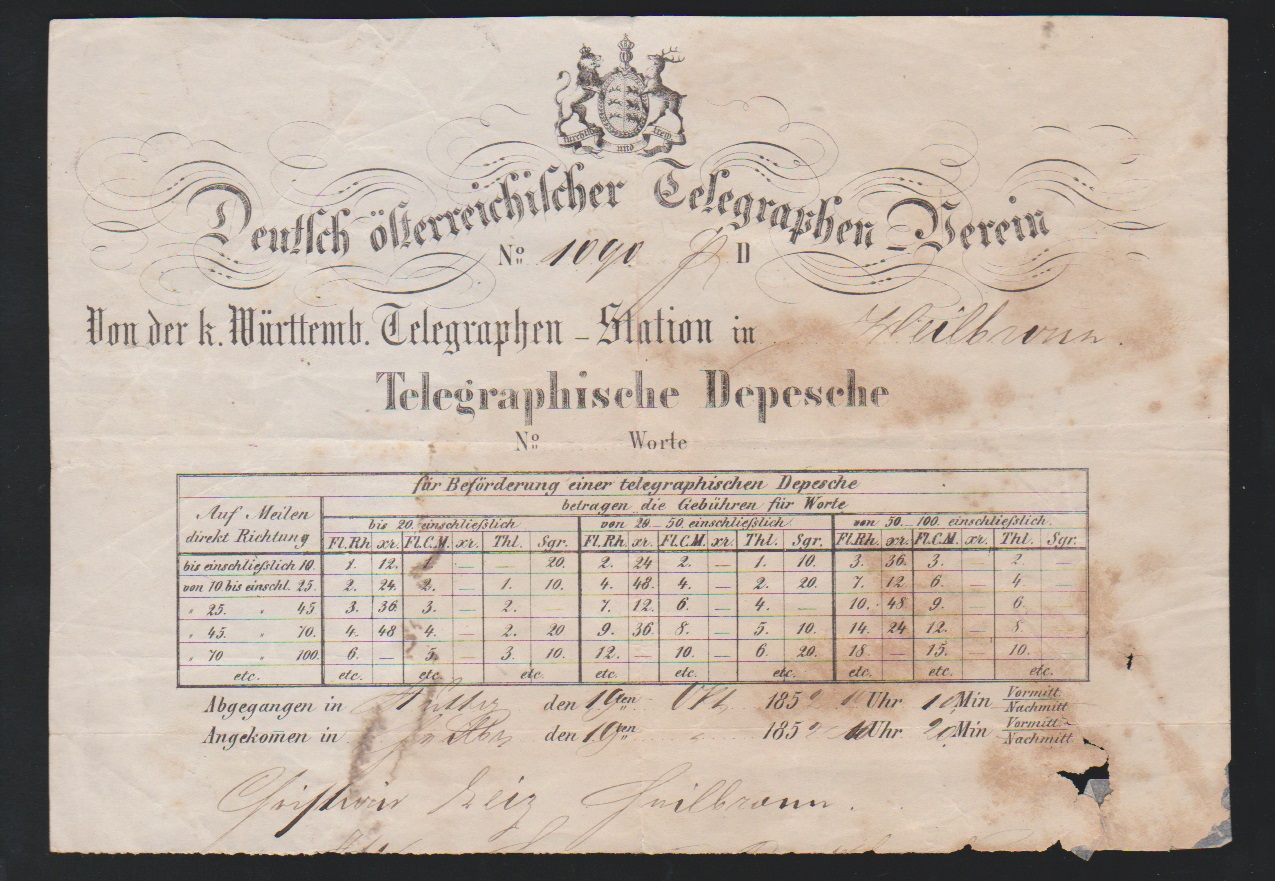 furchtlos und trew
Deutsch österreichischer Telegraphen-Verein
No 1090 D
Von der k. Württemb. Telegraphen-Station in Heilbronn.
Telegraphische Depesche
No Worte
für Beförderung einer telegraphischen Depesche
Auf Meilen direkt Richtung
betragen die Gebühren für Worte
bis 20. einschließlich von 20_50. einschließlich. von 50_100. einschließlich.
Fl.Rh. xr. Fl.C.M. xr. Thl. Sgr. Fl.Rh. xr. Fl.C.M. xr. Thl. Sgr. Fl.Rh. xr. Fl.C.M. xr. Thl. Sgr.
bis einschließlich 10. 1. 12. 1. — — 20. 2. 24 2. — 1. 10. 3. 36. 3. — 2. —
von 10 bis einschl. 25. 2. 24. 2. — 1. 10. 4. 48. 4. — 2. 20. 7. 12 6. — 4. —
" 25. " 45 3. 36. 3. — 2. — 7. 12. 6. — 4. — 10. 48 9. — 6. —
" 45. " 70. 4. 48 4. — 2. 20 9. 36. 8. — 5. 10. 14. 24 12. — 8. —
" 70 " 100. 6. — 5. — 3. 10. 12. — 10. — 6. 20. 18. — 15. — 10. —
etc. etc. etc. etc. etc. etc. etc. etc. etc. etc.
Abgegangen in den 19ten Okt. 185 Uhr 10 Min Vormitt Nachmitt
Angekom̄en in den 19ten " 185 Uhr 20 Min Vormitt Nachmitt
Heilbronn.